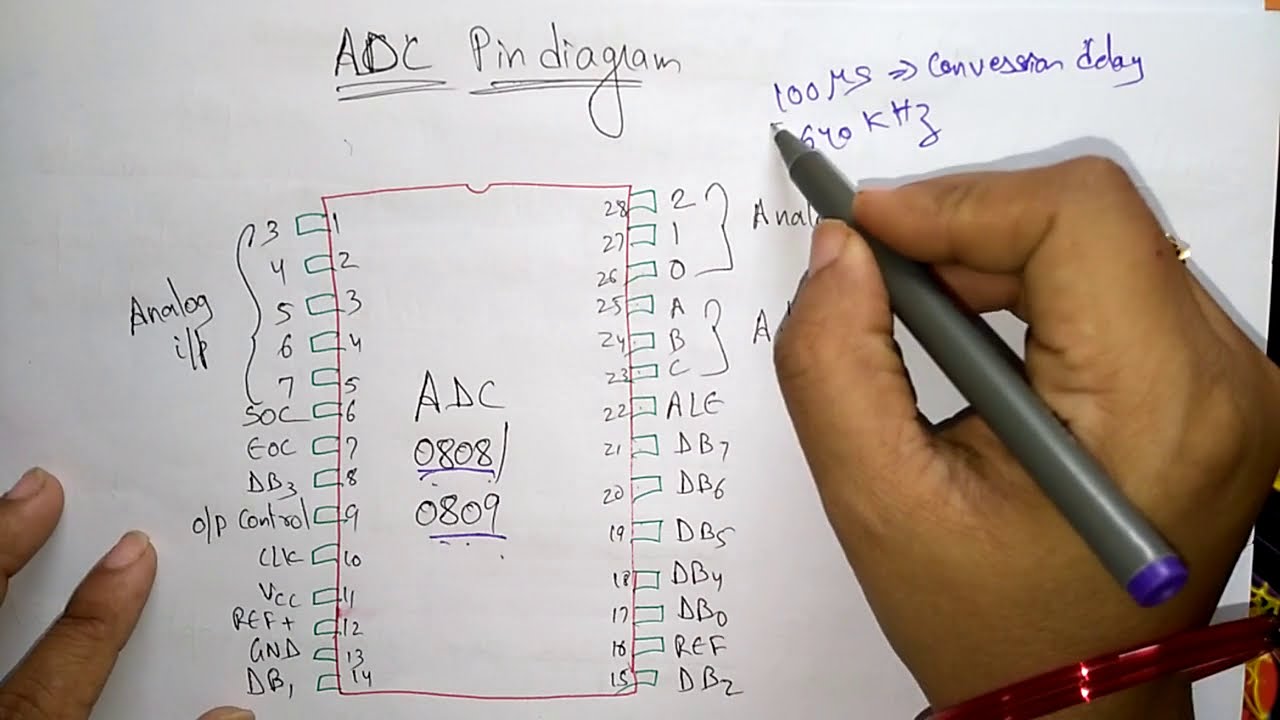 ADC Pin diagram
100 μs ⇒ Convession delay
640 KHz
3 1
4 2
5 3
6 4
7 5
Analog
i/p
SOC 6
EOC 7
DB3 8
o/p Control 9
CLK 10
VCC 11
REF+ 12
GND 13
DB1 14
ADC
0808/
0809
28 2
27 1
26 0
25 A
24 B
23 C
22 ALE
21 DB7
20 DB6
19 DB5
18 DB4
17 DB0
16 REF
15 DB2